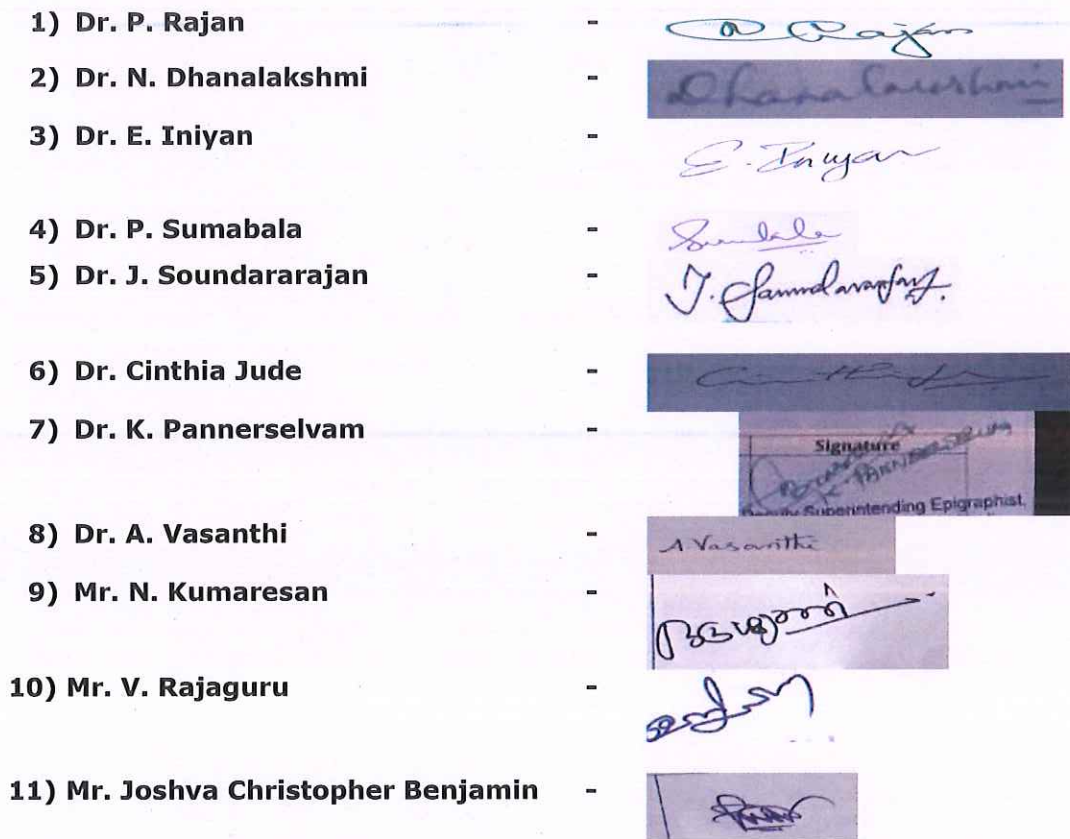 1) Dr. P. Rajan - P. Rajan
2) Dr. N. Dhanalakshmi - Dhanalakshmi
3) Dr. E. Iniyan - E. Iniyan
4) Dr. P. Sumabala -
5) Dr. J. Soundararajan - J. Soundararajan
6) Dr. Cinthia Jude -
7) Dr. K. Pannerselvam - Signature
K. PANNEERSELVAM
Deputy Superintending Epigraphist,
8) Dr. A. Vasanthi - A. Vasanthi
9) Mr. N. Kumaresan -
10) Mr. V. Rajaguru -
11) Mr. Joshva Christopher Benjamin -